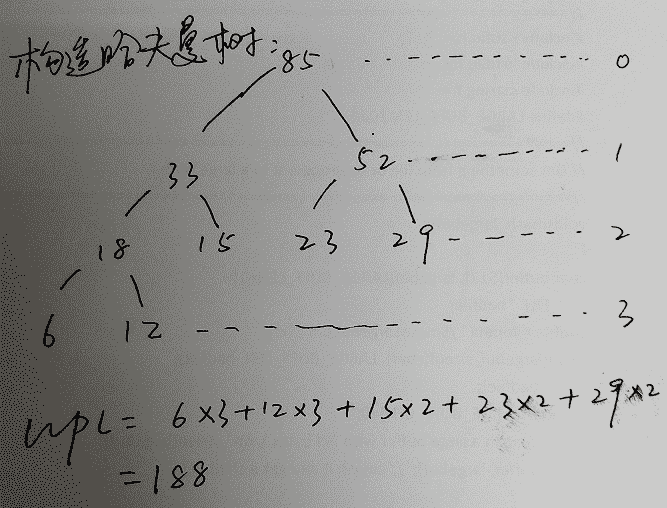 构造哈夫曼树:
85 ------- 0
33 52 ------- 1
18 15 23 29 ------- 2
6 12 ------- 3
WPL = 6×3+12×3+15×2+23×2+29×2
=188